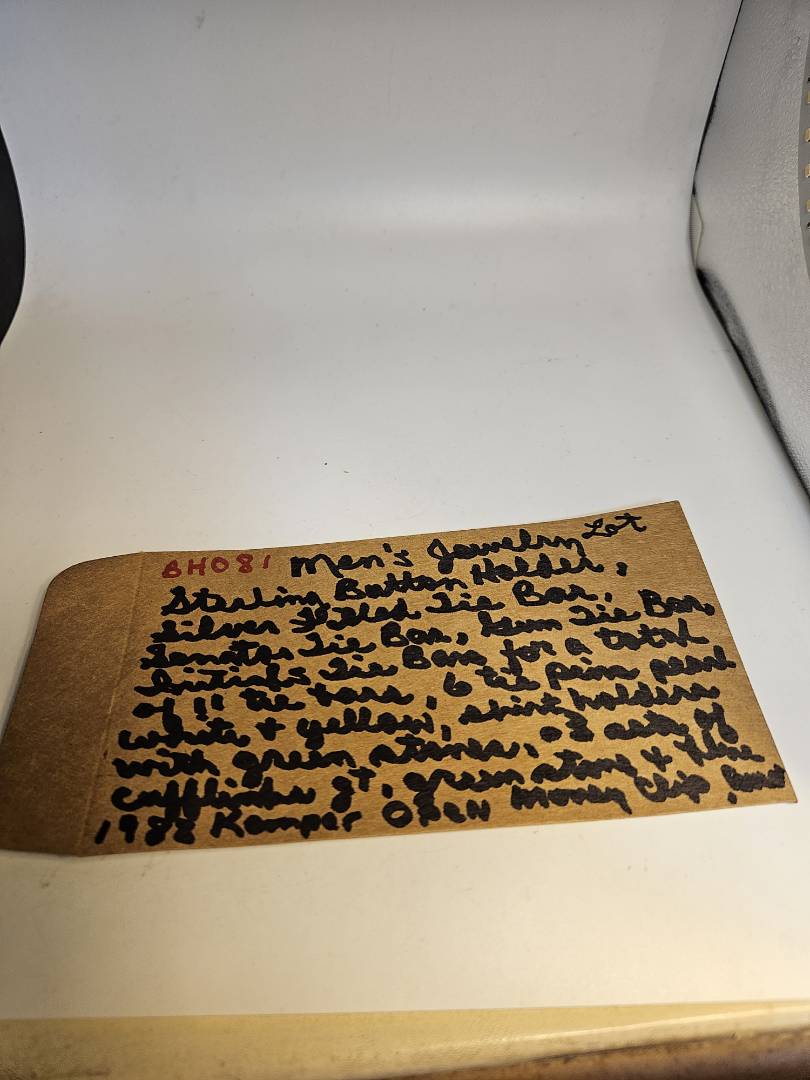 BH081 Men's Jewelry Lot
Sterling Button Holder,
Silver Filled Tie Bar,
Senator Tie Bar, Gem Tie Bar,
Initials Tie Bar for a total
of 11 tie bars, 6 tie pins pearl
white & yellow, shirt holders
with green stones, 3 sets of
cufflinks gt, green stone & blue
1988 Kemper OPEN Money Clip